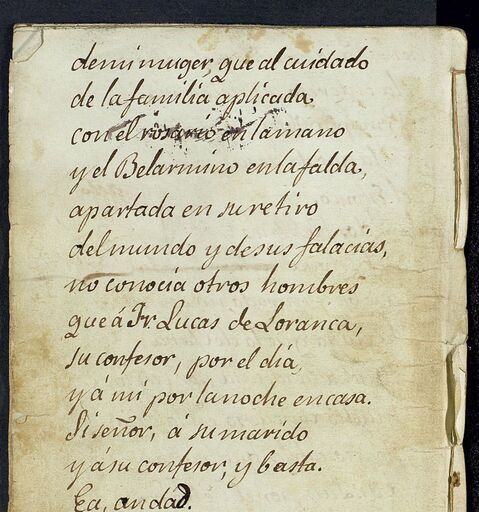 demi muger, que al cuidado
de la familia aplicada
con el rosario en la mano
y el Belarmino en la falda,
apartada en su retiro
del mundo y de sus falacias,
no conocia otros hombres
que á Fr. Lucas de Loranca,
su confesor, por el dia,
y á mi por la noche en casa.
Si señor, á su marido
y á su confesor, y basta.
Ea, andad.